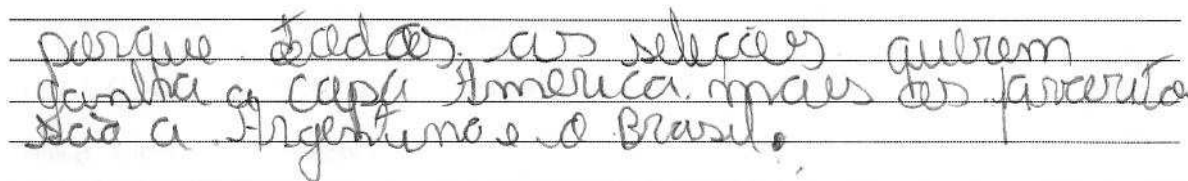 porque todas as seleções querem
ganha a copa America. mais os favorito
são a Argentina e o Brasil.